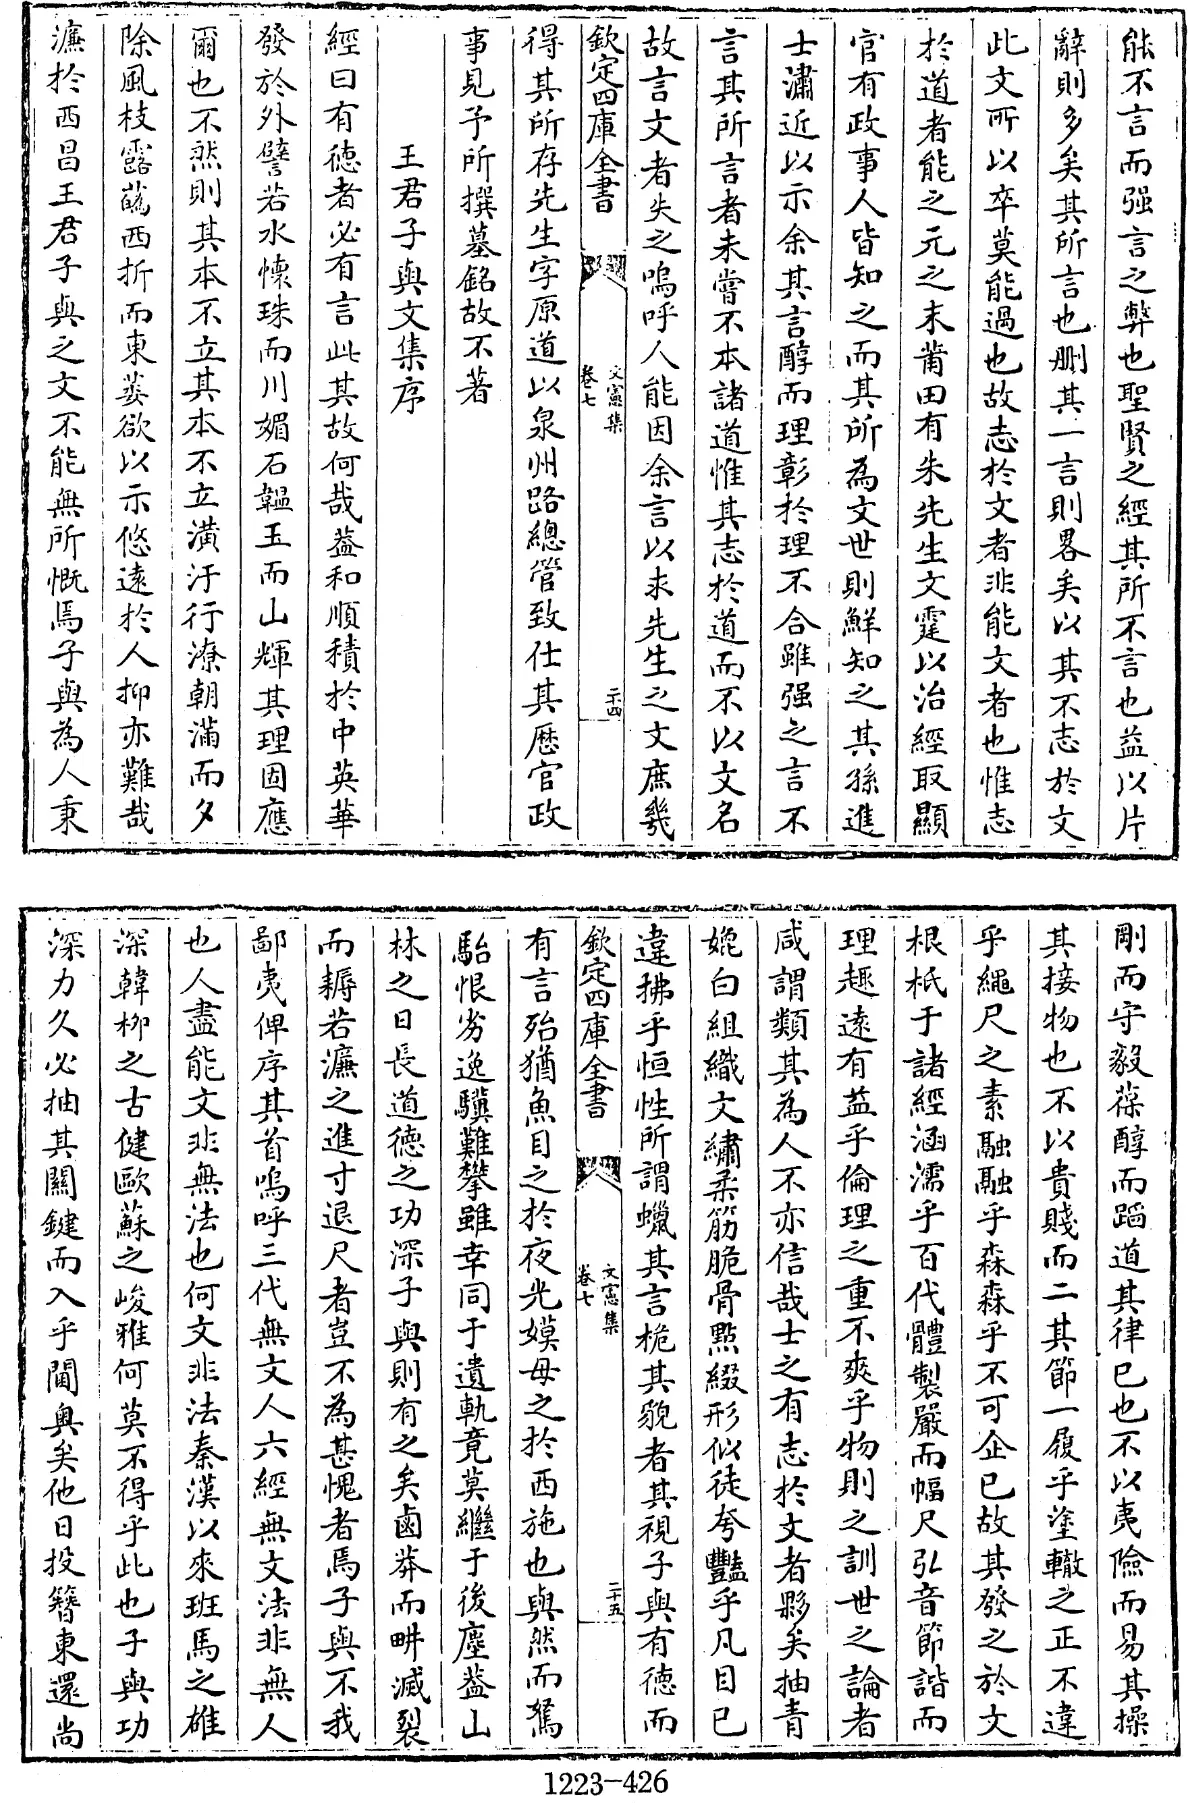 能不言而强言之弊也聖賢之經其所不言也益以片
辭則多矣其所言也刪其一言則畧矣以其不志於文
此文所以卒莫能過也故志於文者非能文者也惟志
於道者能之元之末莆田有朱先生文霆以治經取顯
官有政事人皆知之而其所為文世則鮮知之其孫進
士潚近以示余其言醇而理彰於理不合雖强之言不
言其所言者未嘗不本諸道惟其志於道而不以文名
故言文者失之嗚呼人能因余言以求先生之文庶幾
欽定四庫全書
文憲集
卷七
二十四
得其所存先生字原道以泉州路總管致仕其歷官政
事見予所撰墓銘故不著
王君子與文集序
經曰有德者必有言此其故何哉蓋和順積於中英華
發於外譬若水懷珠而川媚石韞玉而山輝其理固應
爾也不然則其本不立其本不立潢汙行潦朝滿而夕
除風枝露蘤西折而東萎欲以示悠遠於人抑亦難哉
濂於西昌王君子與之文不能無所慨焉子與為人秉
剛而守毅葆醇而蹈道其律已也不以夷險而易其操
其接物也不以貴賤而二其節一履乎塗轍之正不違
乎繩尺之素融融乎森森乎不可企已故其發之於文
根柢于諸經涵濡乎百代體製嚴而幅尺弘音節諧而
理趣遠有益乎倫理之重不爽乎物則之訓世之論者
咸謂類其為人不亦信哉士之有志於文者夥矣抽青
媲白組織文繡柔筋脆骨點綴形似徒夸豔乎凡目已
違拂乎恒性所謂蠟其言梔其貌者其視子與有德而
欽定四庫全書
文憲集
卷七
二十五
有言殆猶魚目之於夜光嫫母之於西施也與然而駑
駘恨劣逸驥難攀雖幸同于遺軌竟莫繼于後塵蓋山
林之日長道德之功深子與則有之矣鹵莽而畊滅裂
而耨若濂之進寸退尺者豈不為甚愧者焉子與不我
鄙夷俾序其首嗚呼三代無文人六經無文法非無人
也人盡能文非無法也何文非法秦漢以來班馬之雄
深韓栁之古健歐蘇之峻雅何莫不得乎此也子與功
深力久必抽其關鍵而入乎閫奥矣他日投簪東還尚
1223-426